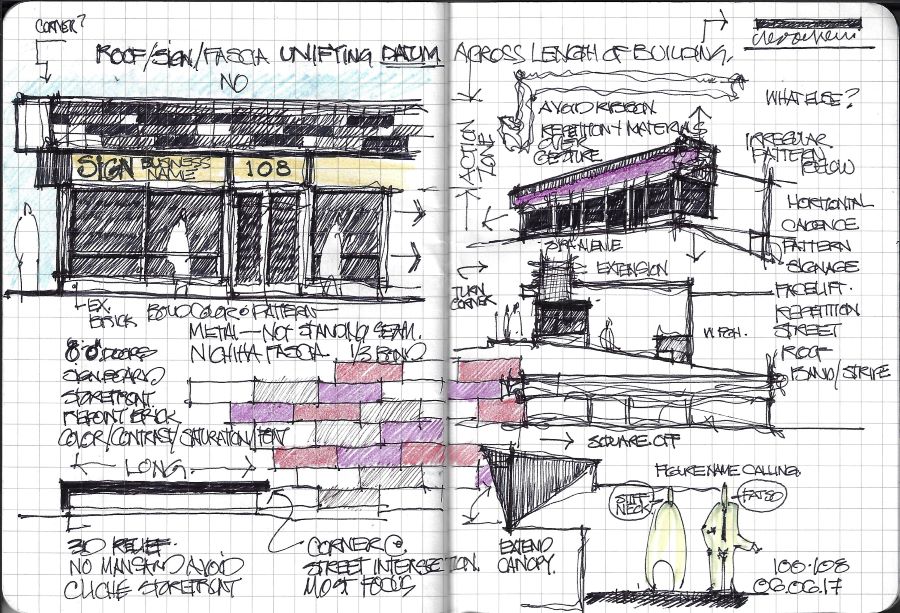 CORNER?
ROOF/SIGN/FASCIA UNIFYING DATUM ACROSS LENGTH OF BUILDING,
NO
SIGN BUSINESS NAME 108
EX. BRICK
BOLD COLOR & PATTERN
METAL — NOT STANDING SEAM.
NICHIHA FASCIA. 1/3 BOND
8'0" DOORS
SIGNBOARD
STOREFRONT.
REPOINT BRICK
COLOR/CONTRAST/SATURATION/FONT
LONG
3D RELIEF.
NO MANSARD AVOID
CLICHE STOREFRONT
CORNER @
STREET INTERSECTION.
MOST FOCUS
ACTION ZONE
AVOID RIBBON
REPETITION & MATERIALS
OVER
GESTURE
WHAT ELSE?
IRREGULAR
PATTERN
BELOW
HORIZONTAL
CADENCE
PATTERN
SIGNAGE
FACELIFT.
REPETITION
STREET
ROOF
BAND/STRIPE
AVENUE
EXTENSION
TURN
CORNER
SQUARE OFF
EXTEND
CANOPY.
FIGURE NAME CALLING.
STIFF
NECK
FATSO
100-108
06.06.17